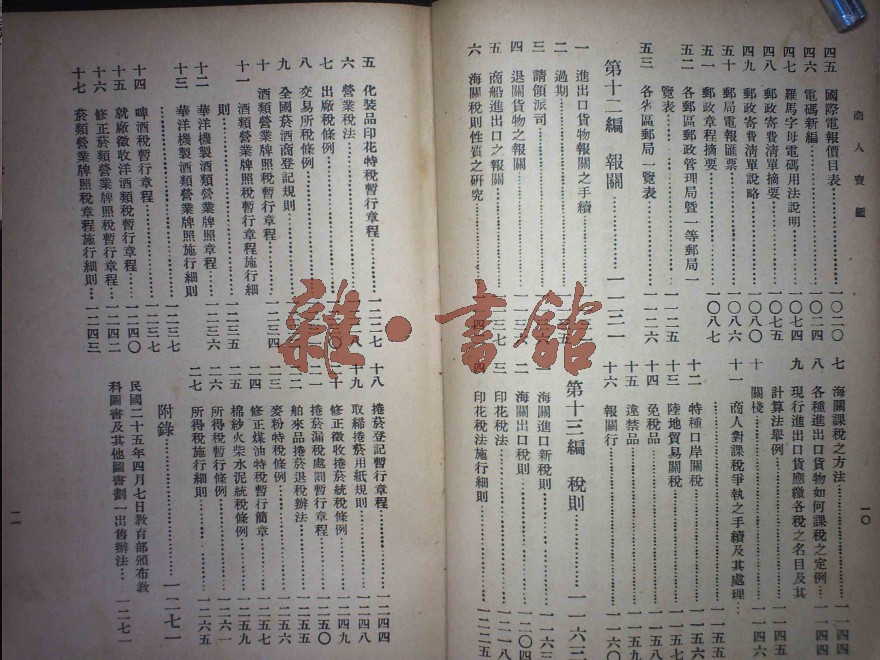 商人寶鑑
四五 國際電報價目表……一〇二〇
四六 電碼新編……一〇二四
四七 羅馬字母電碼用法說明……一〇七四
四八 郵政寄費清單摘要……一〇七五
四九 郵政寄費清單說略……一〇八〇
五十 郵局電報匯票……一〇八六
五一 郵政章程摘要……一〇八七
五二 各郵區郵政管理局暨一等郵局一
覽表……一一二五
五三 各省區郵局一覽表……一一二六
第十二編 報關……一一三一
一 進出口貨物報關之手續
二 過期
三 請領派司
四 退關貨物之報關
五 商船進出口之報關
六 海關稅則性質之研究
七 海關課稅之方法……一一四四
八 各種進出口貨物如何課稅之定例……一一四四
九 現行進出口貨應繳各稅之名目及其
計算法舉例……一一四五
十 關棧……一一四六
十一 商人對課稅爭執之手續及其處理…
一一五五
十二 特種口岸關稅……一一五六
十三 陸地貿易關稅……一一五七
十四 免稅品……一一五八
十五 違禁品……一一五九
十六 報關行……一一六〇
第十三編 稅則……一一六三
一 海關進口新稅則……一一六三
二 海關出口稅則……一二〇四
三 印花稅法
四 印花稅法施行細則……一二二五
一〇
五 化裝品印花特稅暫行章程……一二二七
六 營業稅法
七 出廠稅條例
八 交易所稅條例
九 全國菸酒商登記規則
十 酒類營業牌照稅暫行章程……一二三四
十一 酒類營業牌照稅暫行章程施行細
則……一二三五
十二 華洋機製酒類營業牌照章程……一二三六
十三 華洋機製酒類營業牌照施行細則
……一二三七
十四 啤酒稅暫行章程……一二三七
十五 就廠徵收洋酒類稅暫行章程……一二四〇
十六 修正菸類營業牌照稅暫行章程……一二四二
十七 菸類營業牌照稅章程施行細則……一二四三
十八 捲菸登記暫行章程……一二四四
十九 取締捲菸用紙規則……一二四八
二十 修正徵收捲菸統稅條例……一二四九
二一 捲菸漏稅處罰暫行章程……一二五〇
二二 舶來品捲菸退稅辦法……一二五五
二三 麥粉特稅條例……一二五六
二四 修正煤油特稅暫行簡章……一二五七
二五 棉紗火柴水泥統稅條例……一二五九
二六 所得稅暫行條例……一二六一
二七 所得稅施行細則……一二六五
附錄……一二七一
民國二十五年四月七日教育部頒布教
科圖書及其他圖書劃一出售辦法…一二七一
一一
雜·書館